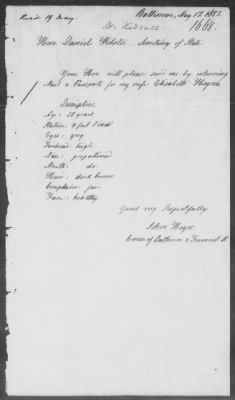 Rec'd 19 May.
Baltimore, May 17, 1851.
1668.
Hon Daniel Webster Secretary of State
Your Hon will please send me by returning
Mail a Passport for my wife Elizabeth
Description
Age: 38 years
Stature: 4 feet
Eyes: grey
Forehead: high
Nose: proportioned
Mouth: do
Hair: dark brown
Complexion: fair
Face: healthy
Yours very Respectfully
John
Corner of Baltimore & Fremont St